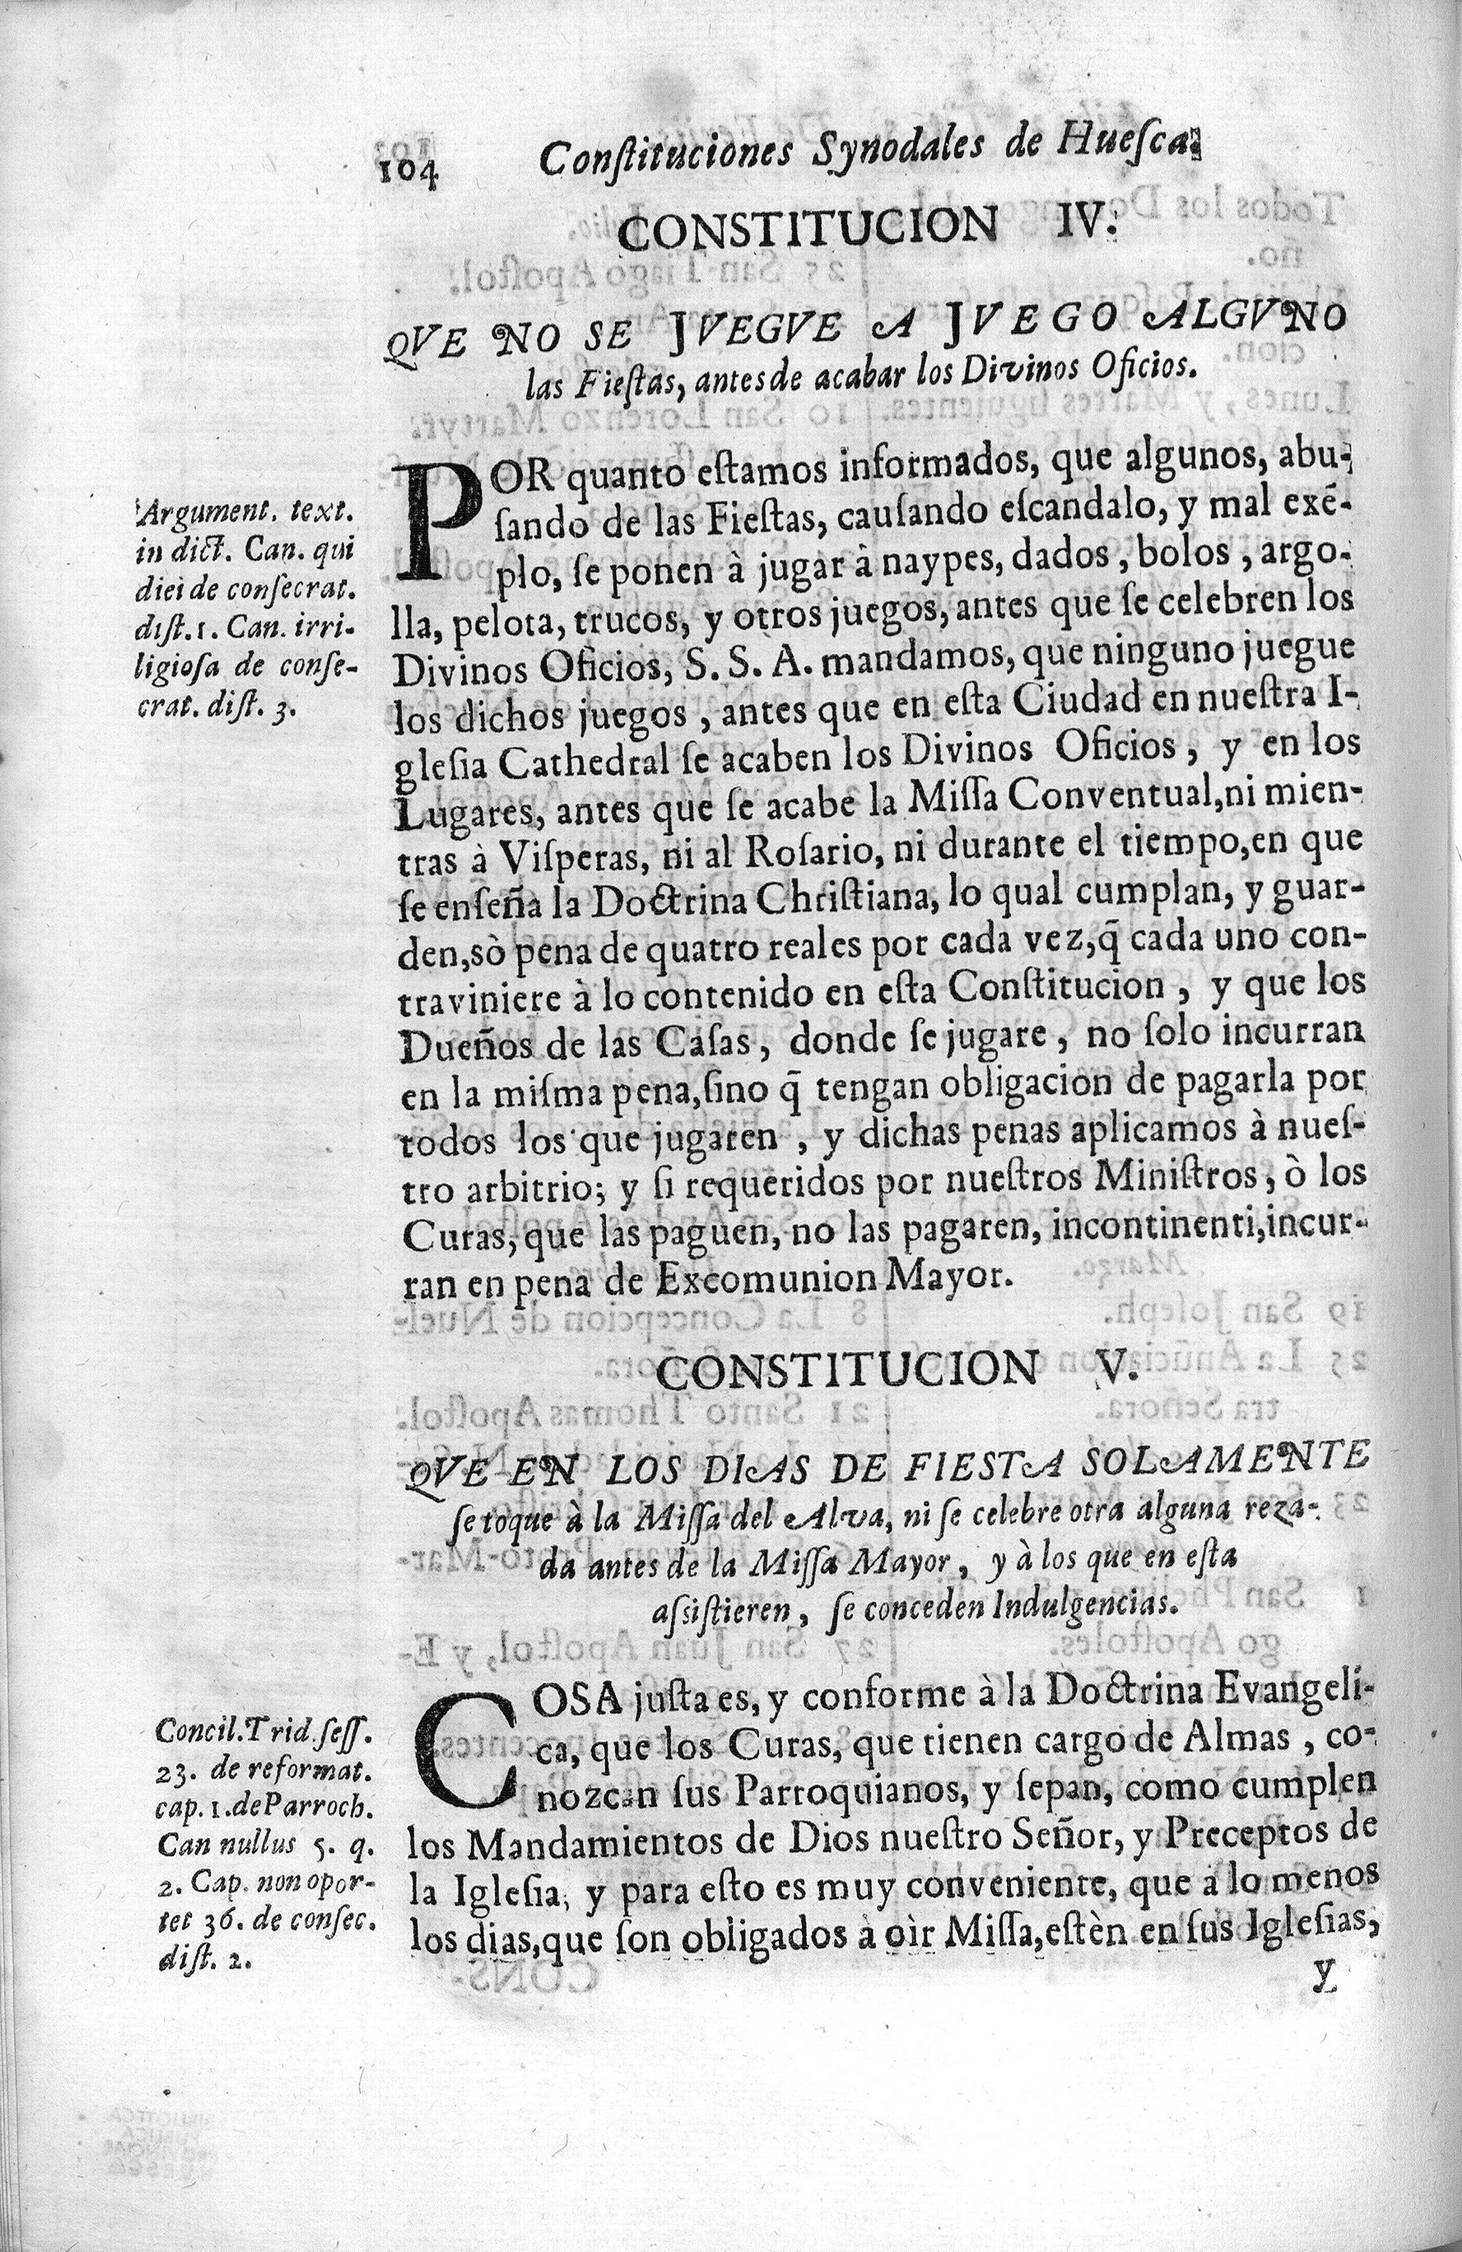 104 Conſtituciones Synodales de Hueſca.
CONSTITUCION IV.
QVE NO SE JVEGVE A JVEGO ALGVNO
las Fieſtas, antes de acabar los Divinos Oficios.
Argument. text.
in dict. Can. qui
diei de conſecrat.
diſt. 1. Can. irri-
ligioſa de conſe-
crat. diſt. 3.
POR quanto eſtamos informados, que algunos, abu-
ſando de las Fieſtas, cauſando eſcandalo, y mal exē-
plo, ſe ponen à jugar à naypes, dados, bolos, argo-
lla, pelota, trucos, y otros juegos, antes que ſe celebren los
Divinos Oficios, S. S. A. mandamos, que ninguno juegue
los dichos juegos, antes que en eſta Ciudad en nueſtra I-
gleſia Cathedral ſe acaben los Divinos Oficios, y en los
Lugares, antes que ſe acabe la Miſſa Conventual, ni mien-
tras à Viſperas, ni al Roſario, ni durante el tiempo, en que
ſe enſeña la Doctrina Chriſtiana, lo qual cumplan, y guar-
den, sò pena de quatro reales por cada vez, q̃ cada uno con-
traviniere à lo contenido en eſta Conſtitucion, y que los
Dueños de las Caſas, donde ſe jugare, no ſolo incurran
en la miſma pena, ſino q̃ tengan obligacion de pagarla por
todos los que jugaren, y dichas penas aplicamos à nueſ-
tro arbitrio; y ſi requeridos por nueſtros Miniſtros, ò los
Curas, que las paguen, no las pagaren, incontinenti, incur-
ran en pena de Excomunion Mayor.
CONSTITUCION V.
QVE EN LOS DIAS DE FIESTA SOLAMENTE
ſe toque à la Miſſa del Alva, ni ſe celebre otra alguna reza-
da antes de la Miſſa Mayor, y à los que en eſta
aſsiſtieren, ſe conceden Indulgencias.
Concil. Trid. ſeſſ.
23. de reformat.
cap. 1. de Parroch.
Can nullus 5. q.
2. Cap. non opor-
tet 36. de conſec.
diſt. 2.
COSA juſta es, y conforme à la Doctrina Evangeli-
ca, que los Curas, que tienen cargo de Almas, co-
nozcan ſus Parroquianos, y ſepan, como cumplen
los Mandamientos de Dios nueſtro Señor, y Preceptos de
la Igleſia, y para eſto es muy conveniente, que à lo menos
los dias, que ſon obligados à oìr Miſſa, eſtèn en ſus Igleſias,
y